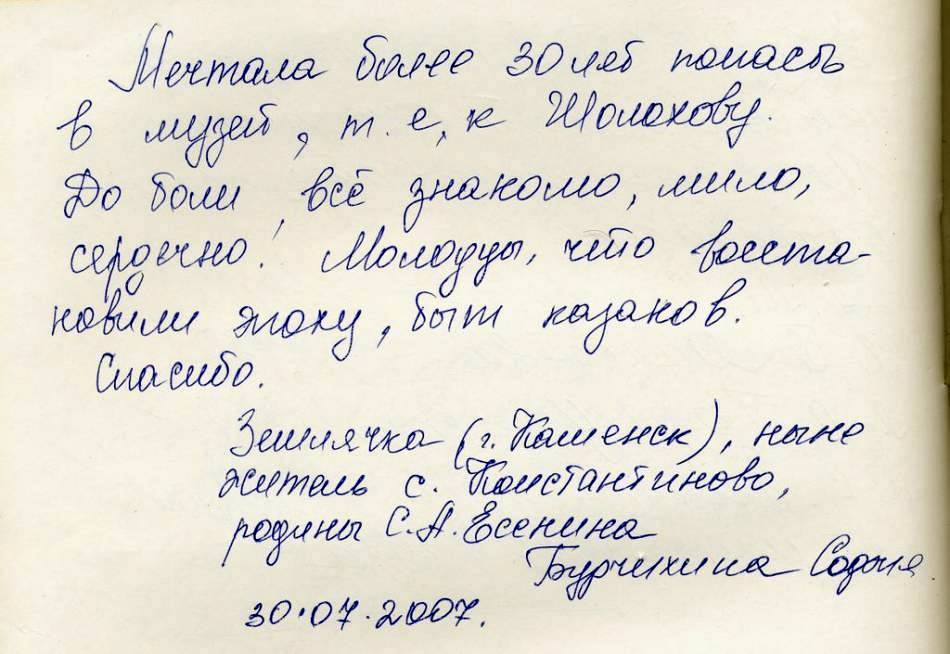 Мечтала более 30 лет попасть
в музей, т. е, к Шолохову.
До боли всё знакомо, мило,
сердечно! Молодцы, что восста-
новили эпоху, быт казаков.
Спасибо.
Землячка (г. Каменск), ныне
житель с. Константиново,
родины С. А. Есенина
Бурчихина Софья
30.07.2007.